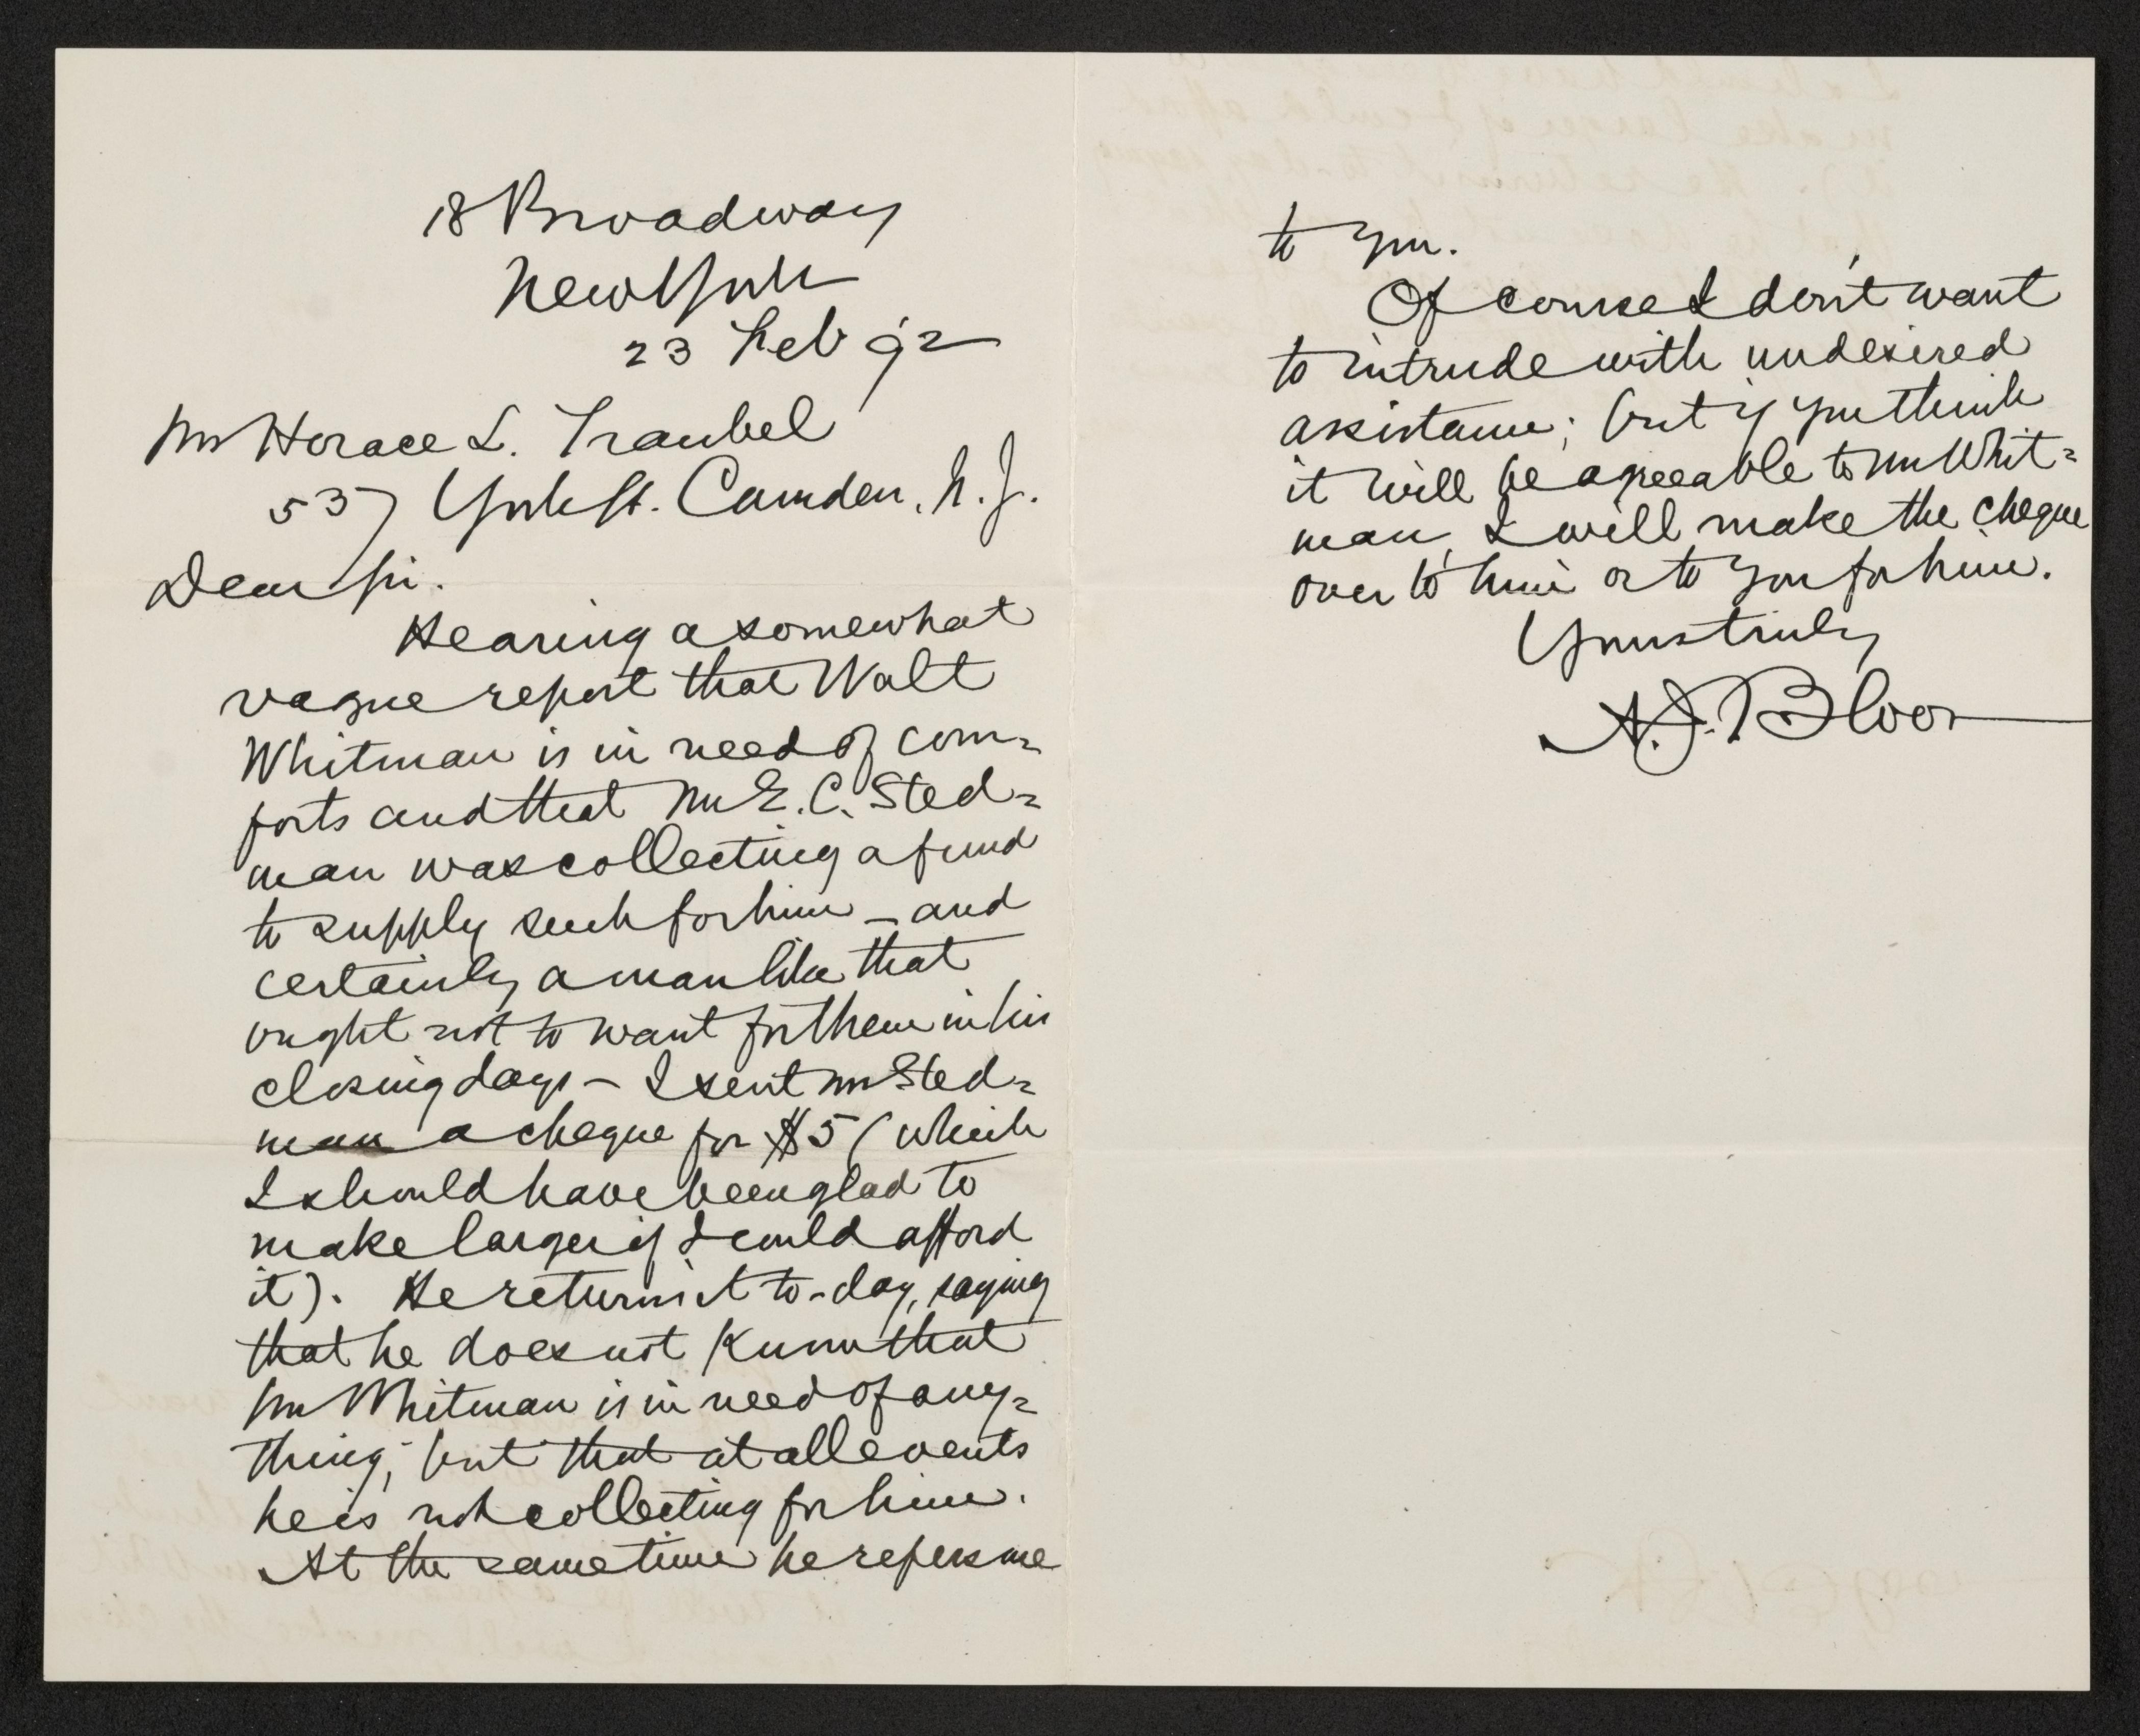 18 Broadway
New York
23 Feb 92
Mr Horace L. Traubel
537 York St. Camden, N. J.
Dear Sir.
Hearing a somewhat
vague report that Walt
Whitman is in need of com=
forts and that Mr E. C. Sted=
man was collecting a fund
to supply such for him – and
certainly a man like that
ought not to want for them in his
closing days – I sent Mr Sted=
man a cheque for $5 (which
I should have been glad to
make larger if I could afford
it). He returns it to-day, saying
that he does not know that
Mr Whitman is in need of any=
thing; but that at all events
he is not collecting for him.
At the same time he refers me
to you.
Of course I don't want
to intrude with undesired
assistance; but if you think
it will be agreeable to Mr Whit=
man, I will make the cheque
over to him or to you for him.
Yours truly
A. J. Bloor